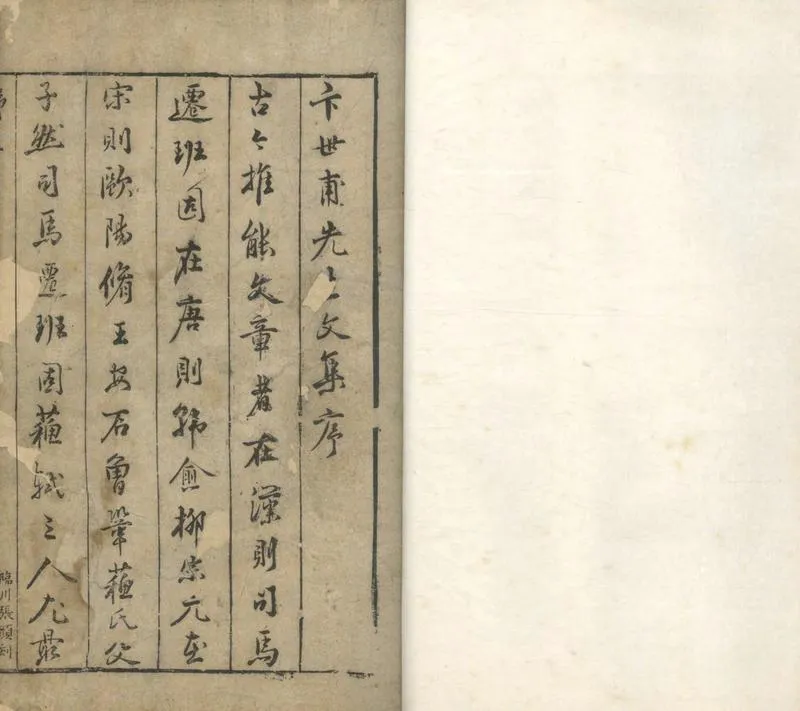 卞世甫先生文集序
古今推能文章者在漢則司馬
遷班固在唐則韓愈柳宗元在
宋則歐陽脩王安石曾鞏蘇氏父
子然司馬遷班固蘇軾三人尤最
臨川張